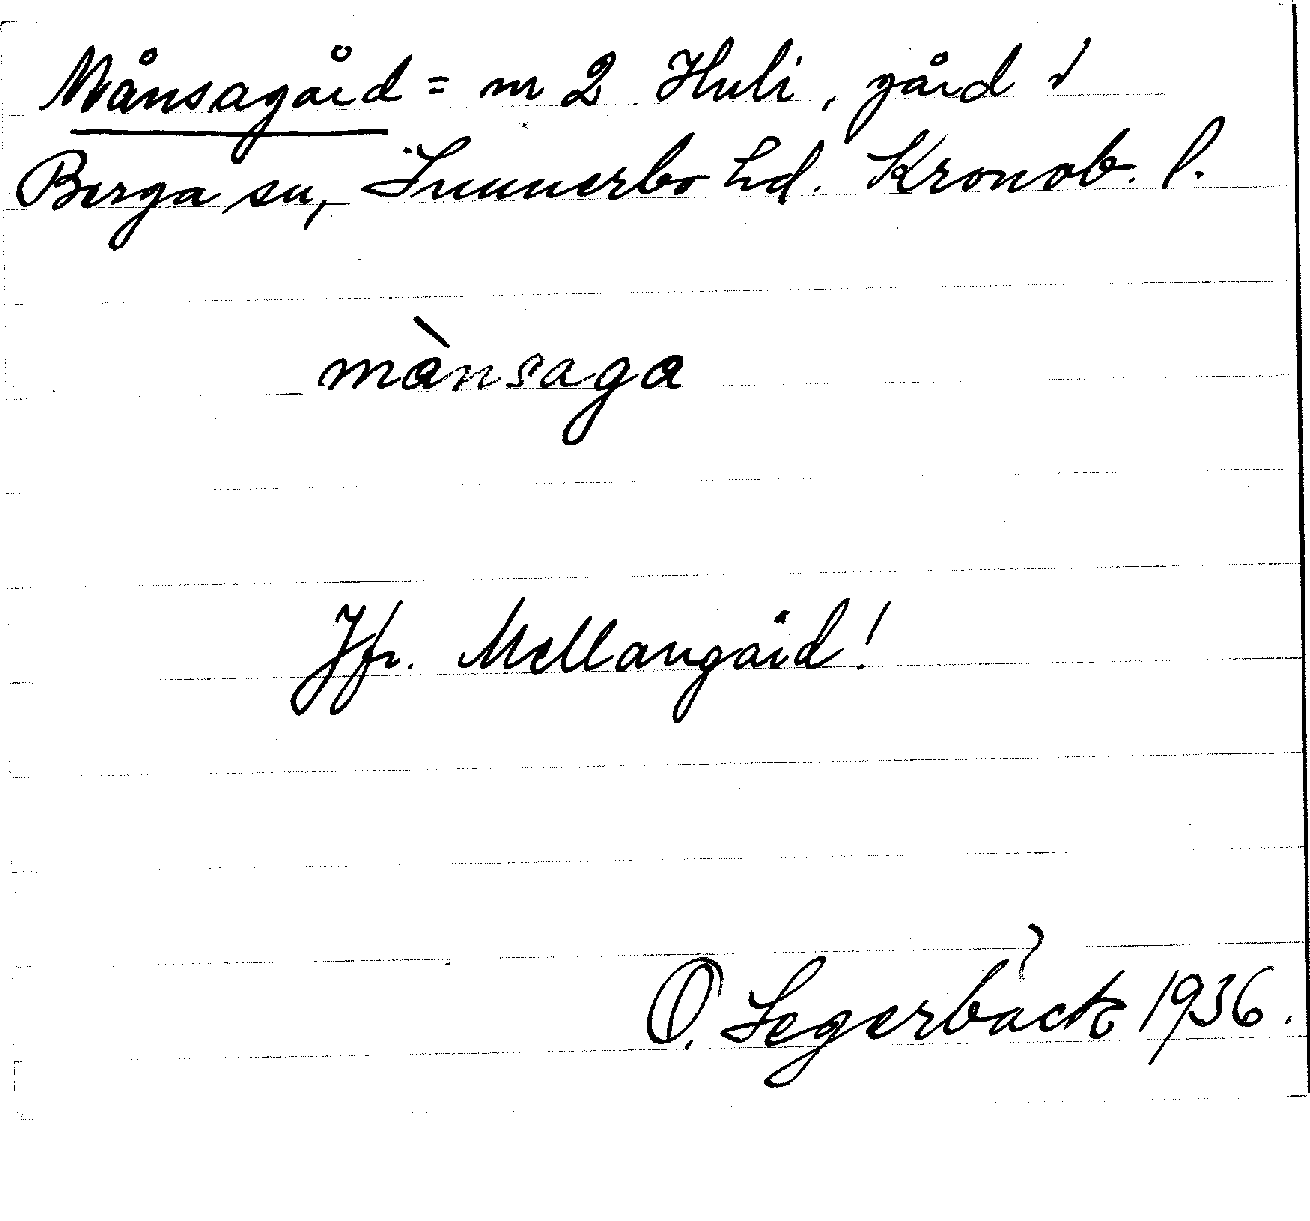 Månsagård = nr 2 Huli, gård i
Berga sn, Sunnerbo hd. Kronob. l.
mànsaga
Jfr. Mellangård!
O. Segerbäck 1936.